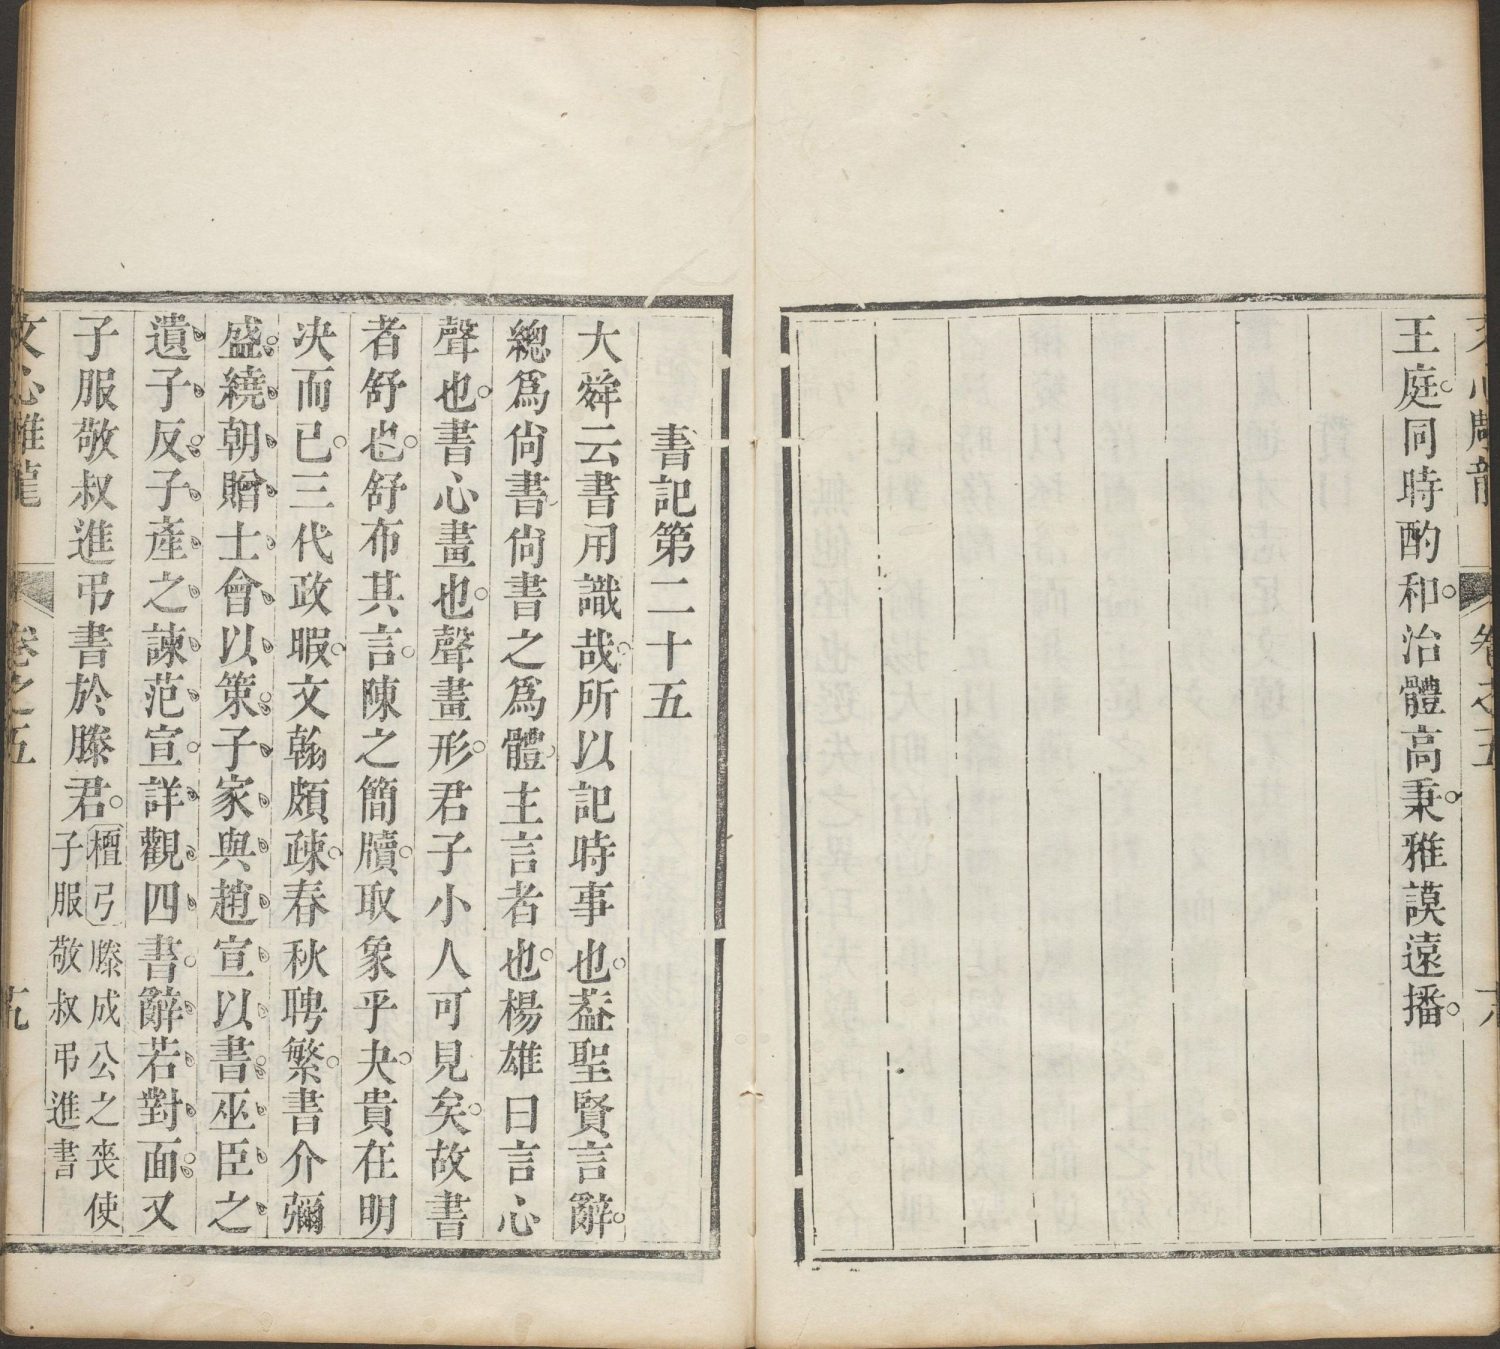 王庭同時酌和治體高秉雅謨遠播
書記第二十五
大舜云書用識哉所以記時事也葢聖賢言辭
總爲尙書尙書之爲體主言者也楊雄曰言心
聲也書心畫也聲畫形君子小人可見矣故書
者舒也舒布其言陳之簡牘取象乎夬貴在明
决而已三代政暇文翰頗疎春秋聘繁書介彌
盛繞朝贈士會以策子家與趙宣以書巫臣之
遺子反子產之諫范宣詳觀四書辭若對面又
子服敬叔進弔書於滕君檀弓滕成公之喪使
子服敬叔弔進書
文心雕龍 卷之五